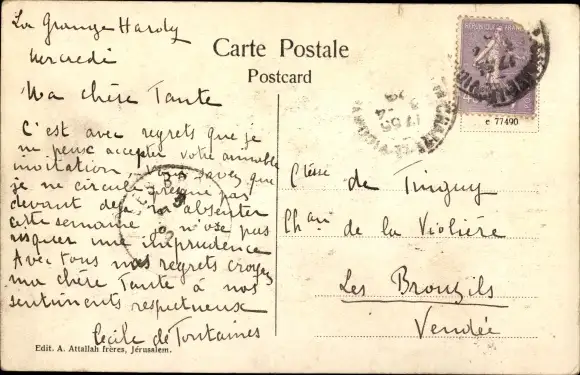 La Grange Hardy
Mercredi
Carte Postale
Postcard
Ma chère Tante
C'est avec regrets que je
ne peux accepter votre aimable
invitation, vous savez que
je ne circule presque pas
devant m'absenter
cette semaine je n'ose pas
risquer une imprudence
Avec tous mes regrets croyez
ma chère Tante à nos
sentiments respectueux
Cécile de Fontaines
Ctesse de Tinguy
Chau de la Violière
Les Brouzils
Vendée
e 77490
Edit. A. Attallah frères, Jérusalem.